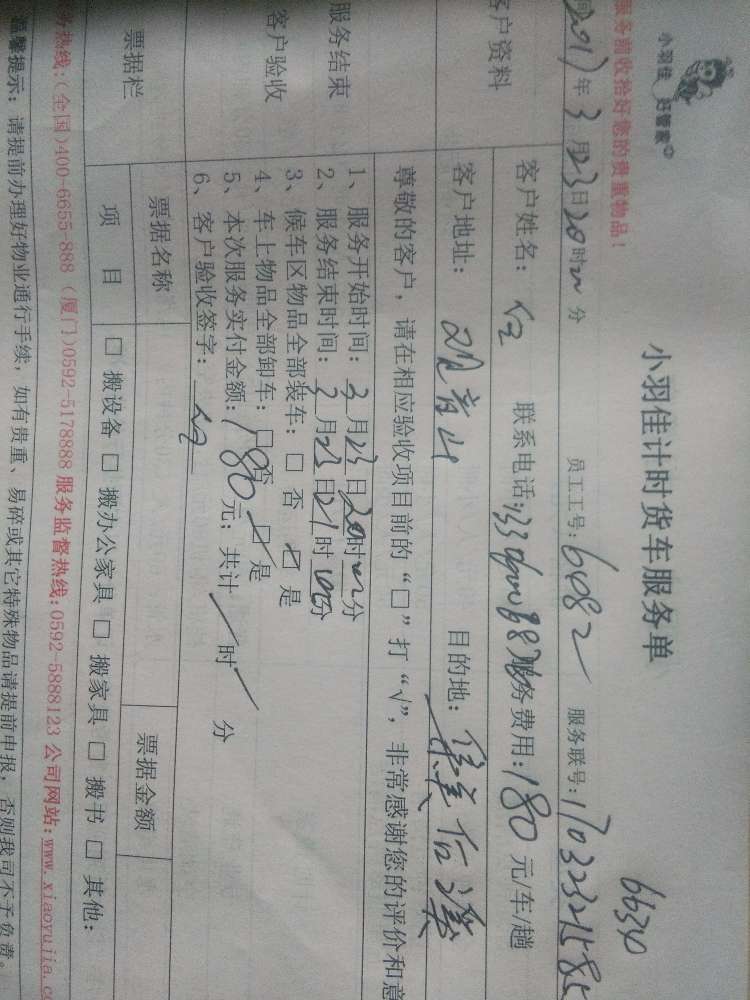 小羽佳 好管家
小羽佳计时货车服务单
66340
服务前收拾好您的贵重物品！
2017年3月23日20时 分 员工工号：6082 服务联号：1703232158
客户资料
客户姓名： 联系电话： 服务费用：180元/车/趟
客户地址：观音山 目的地：集美后溪
尊敬的客户，请在相应验收项目前的“□”打“√”，非常感谢您的评价和意
服务结束
客户验收
1、服务开始时间：3月23日20时 分
2、服务结束时间：3月23日21时 分
3、候车区物品全部装车：□ 否 ☑ 是
4、车上物品全部卸车：□ 否 ☑ 是
5、本次服务实付金额：180元；共计 / 时 / 分
6、客户验收签字：
票据栏
票据名称 票据金额
项 目 □ 搬设备 □ 搬办公家具 □ 搬家具 □ 搬书 □ 其他：
务热线：(全国)400-6655-888 (厦门)0592-5178888 服务监督热线：0592-5888123 公司网站：www.xiaoyujia.c
温馨提示：请提前办理好物业通行手续，如有贵重、易碎或其它特殊物品请提前申报，否则我司不予负责。